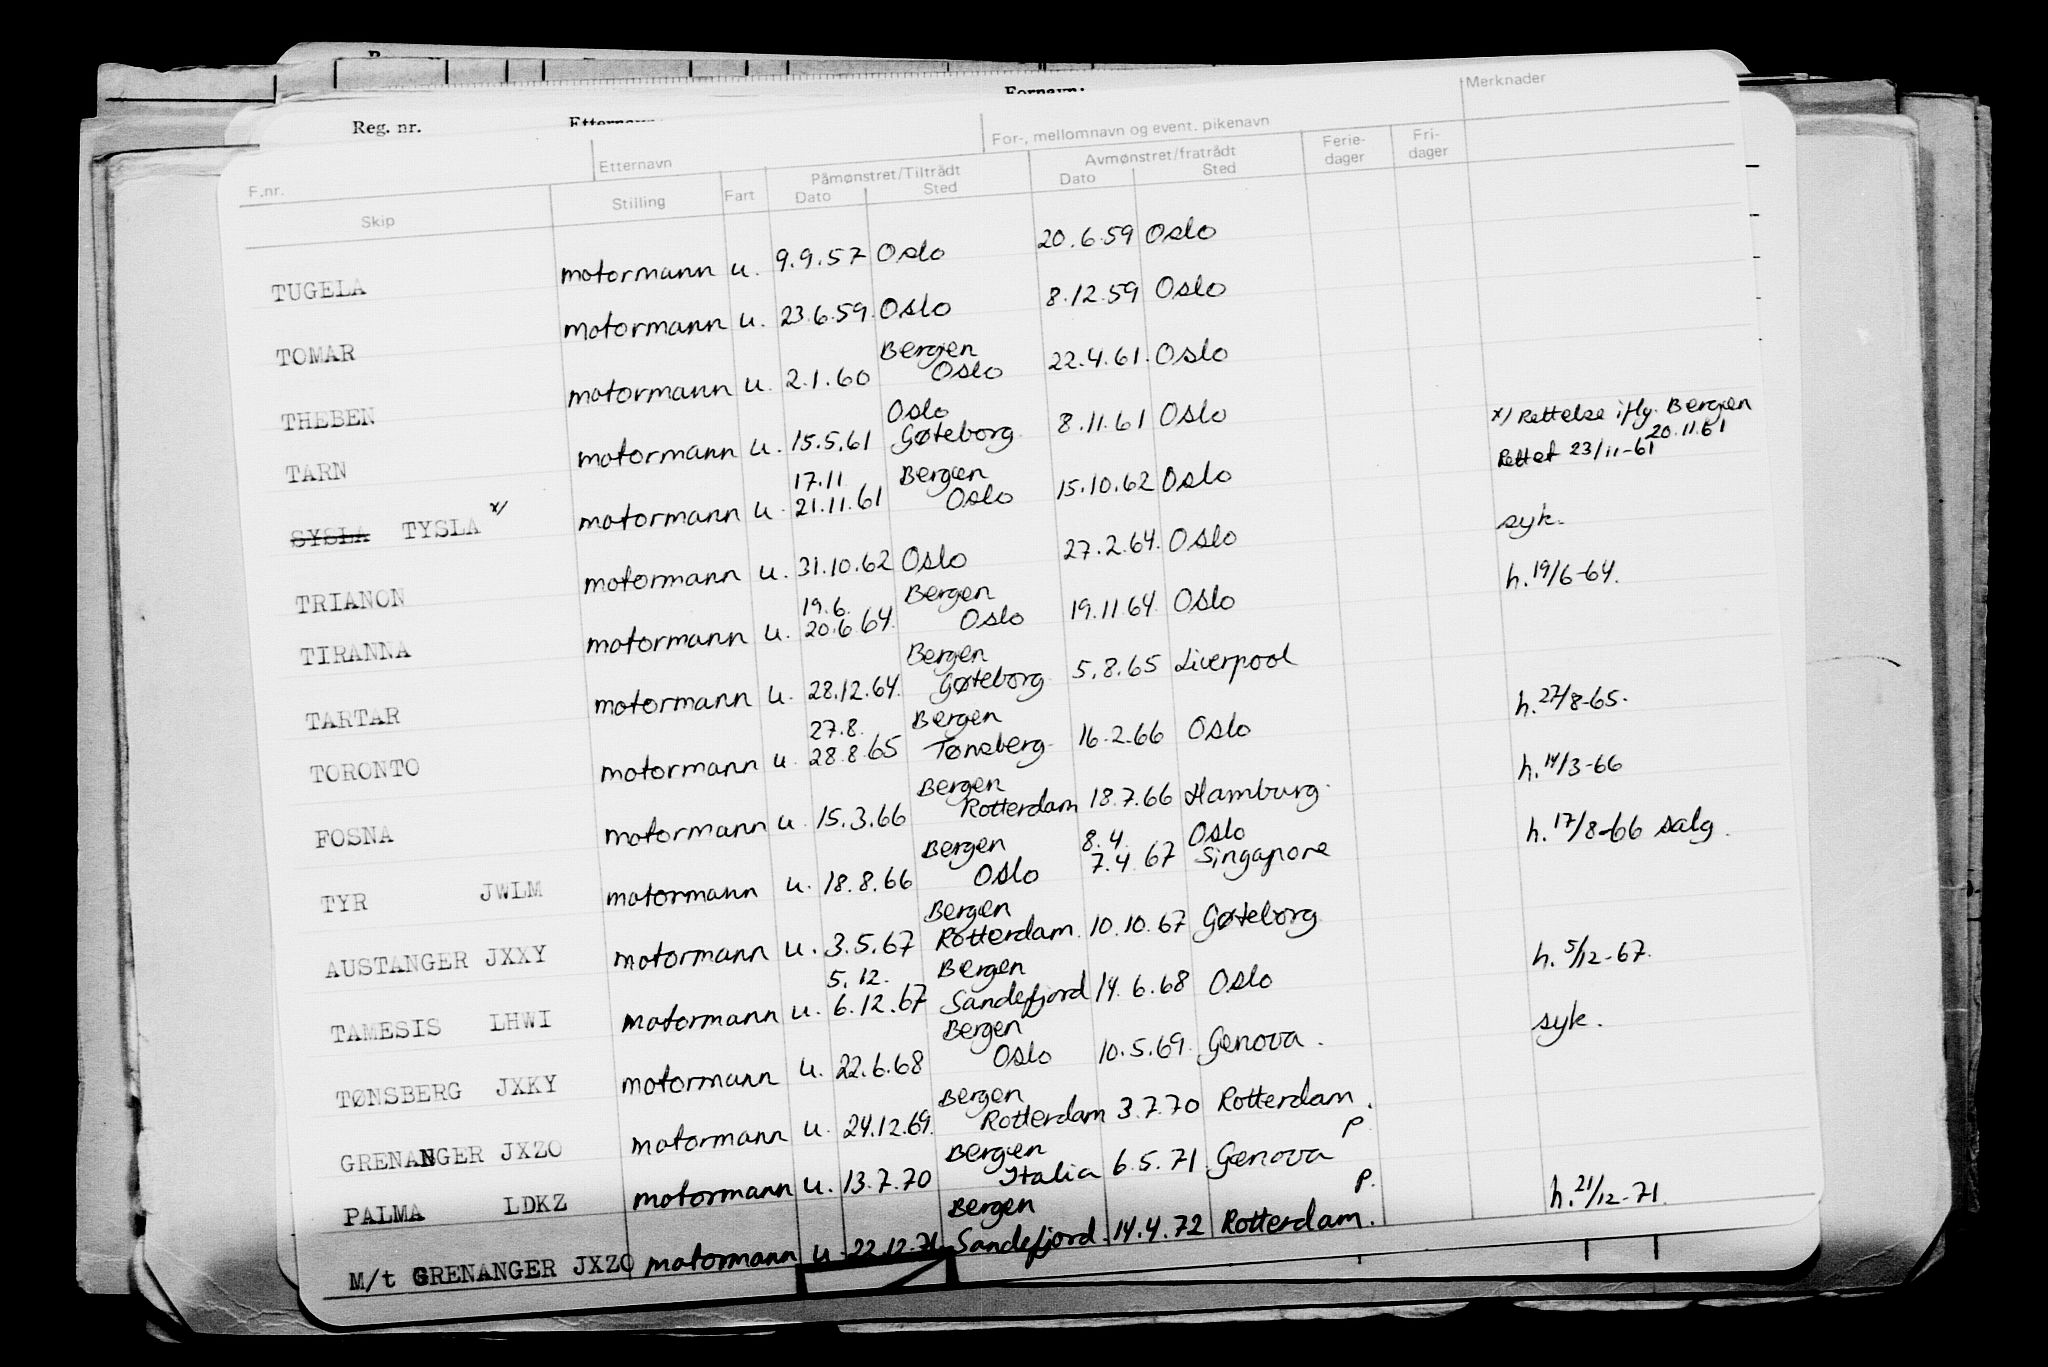 Fornavn:
Reg. nr.
F.nr. Etternavn For-, mellomnavn og event. pikenavn Merknader
Skip Stilling Fart Påmønstret/Tiltrådt Dato Sted Avmønstret/fratrådt Dato Sted Ferie-dager Fri-dager
TUGELA motormann u. 9.9.57 Oslo 20.6.59 Oslo
TOMAR motormann u. 23.6.59 Oslo 8.12.59 Oslo
Bergen
THEBEN motormann u. 2.1.60 Oslo 22.4.61. Oslo
Oslo x) Rettelse iflg. Bergen
TARN motormann u. 15.5.61 Gøteborg 8.11.61 Oslo 20.11.61
17.11 Bergen Rettet 23/11-61
SYSLA TYSLA x) motormann u. 21.11.61 Oslo 15.10.62 Oslo syk.
TRIANON motormann u. 31.10.62 Oslo 27.2.64. Oslo
19.6. Bergen
TIRANNA motormann u. 20.6.64. Oslo 19.11.64. Oslo h. 19/6-64.
Bergen
TARTAR motormann u. 28.12.64. Gøteborg 5.8.65 Liverpool
27.8. Bergen
TORONTO motormann u. 28.8.65 Tønsberg 16.2.66 Oslo h. 27/8-65.
Bergen
FOSNA motormann u. 15.3.66 Rotterdam 18.7.66 Hamburg. h. 14/3-66
Bergen 8.4. Oslo
TYR JWLM motormann u. 18.8.66 Oslo 7.4.67 Singapore h. 17/8-66 salg.
Bergen
AUSTANGER JXXY motormann u. 3.5.67 Rotterdam. 10.10.67 Gøteborg
5.12. Bergen
TAMESIS LHWI motormann u. 6.12.67 Sandefjord 14.6.68 Oslo h. 5/12-67.
Bergen
TØNSBERG JXKY motormann u. 22.6.68 Oslo 10.5.69. Genova. syk.
Bergen
GRENANGER JXZO motormann u. 24.12.69. Rotterdam 3.7.70 Rotterdam.
Bergen p.
PALMA LDKZ motormann u. 13.7.70 Italia 6.5.71. Genova
Bergen p.
M/t GRENANGER JXZO motormann u. 22.12.71. Sandefjord. 14.4.72 Rotterdam. h. 21/12-71.